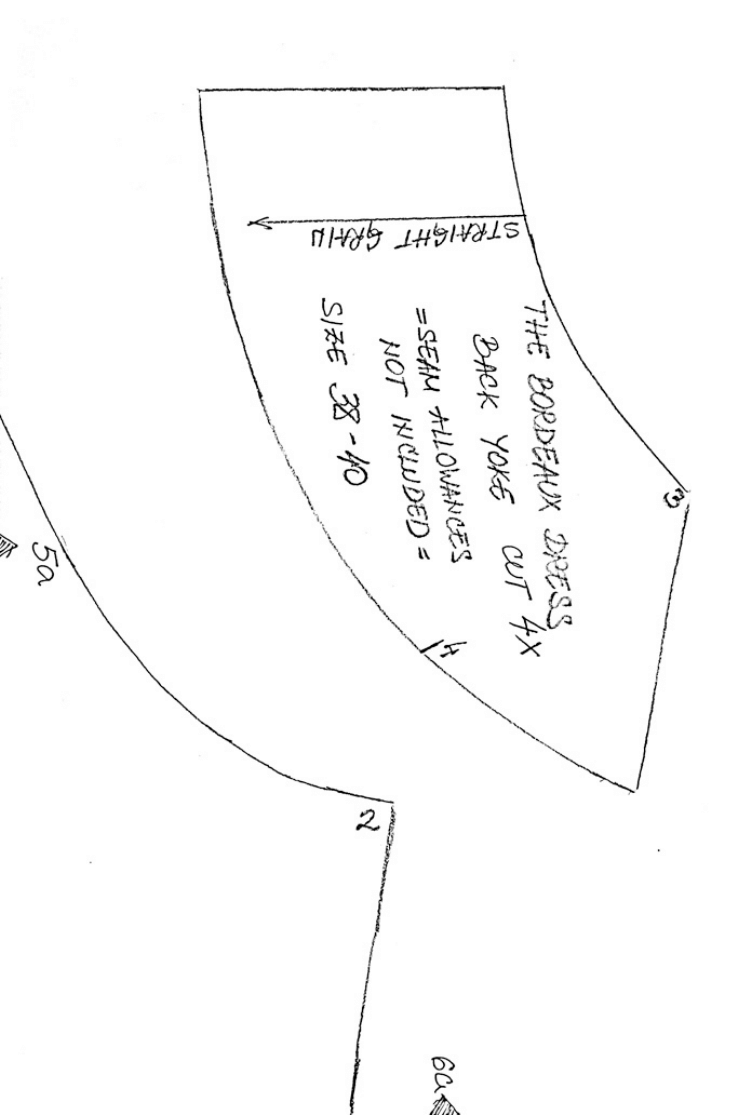 STRAIGHT GRAIN
THE BORDEAUX DRESS
BACK YOKE CUT 4X
=SEAM ALLOWANCES
NOT INCLUDED=
SIZE 38-40
3
4
5a
2
6a